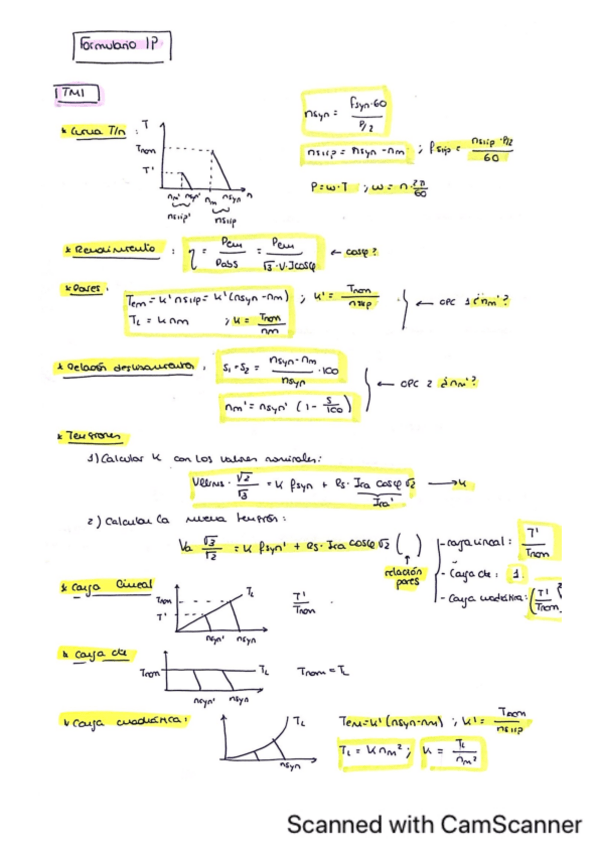 Formulario IP
TMI
* Curva T/n :
T
Tnom
T'
nm' nsyn' nm nsyn n
nslip' nslip
nsyn = fsyn·60 / P/2
nslip = nsyn - nm ; fslip = nslip·P/2 / 60
P = ω·T ; ω = n·2π/60
* Rendimiento : η = Pem / Pabs = Pem / √3·V·Icosφ ← cosφ?
* Pares : Tem = k' nslip = k' (nsyn - nm) ; k' = Tnom / nslip
TL = k nm ; k = Tnom / nm
← OPC 1 ¿nm'?
* Relación deslizamientos : S1 = S2 = nsyn - nm / nsyn · 100
nm' = nsyn' (1 - S/100)
← OPC 2 ¿nm'?
* Tensiones
1) Calcular k con los valores nominales:
· √2/√3 = k fsyn + Rs · Ira cosφ √2 → k
Ira'
2) Calcular la nueva tensión:
Va √3/√2 = k fsyn' + Rs · Ira cosφ √2 ( )
relación pares
- carga lineal : T' / Tnom
- Carga cte : 1
- Carga cuadrática : (T' / Tnom)²
* Carga lineal
Tnom
T'
TL
nsyn' nsyn
T' / Tnom
* Carga cte
Tnom
TL
nsyn' nsyn
Tnom = TL
* Carga cuadrática :
TL
nsyn
Tem = k' (nsyn - nm) ; k' = Tnom / nslip
TL = k nm² ; k = TL / nm²
Scanned with CamScanner